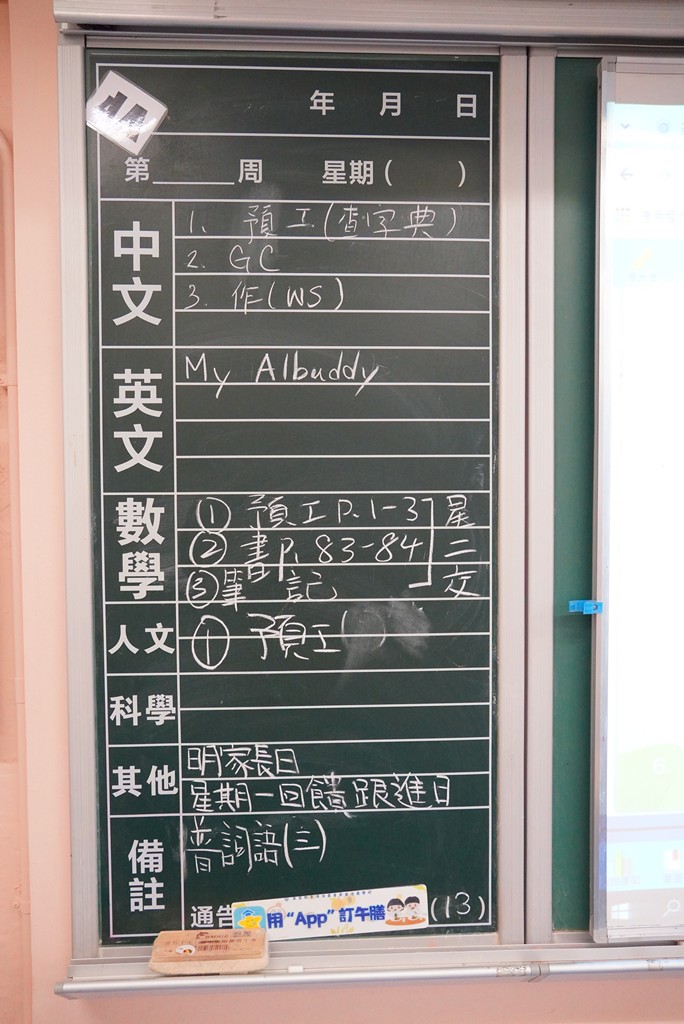 4A
年 月 日
第______周 星期( )
中文
1. 預工(查字典)
2. GC
3. 作(WS)
英文
My AIbuddy
數學
① 預工P.1-3
② 書P. 83-84
③筆 記
星二交
人文
① 預工
科學
其他
明家長日
星期一回饋跟進日
備註
普詞語(三)
通告
用“App”訂午膳
(13)